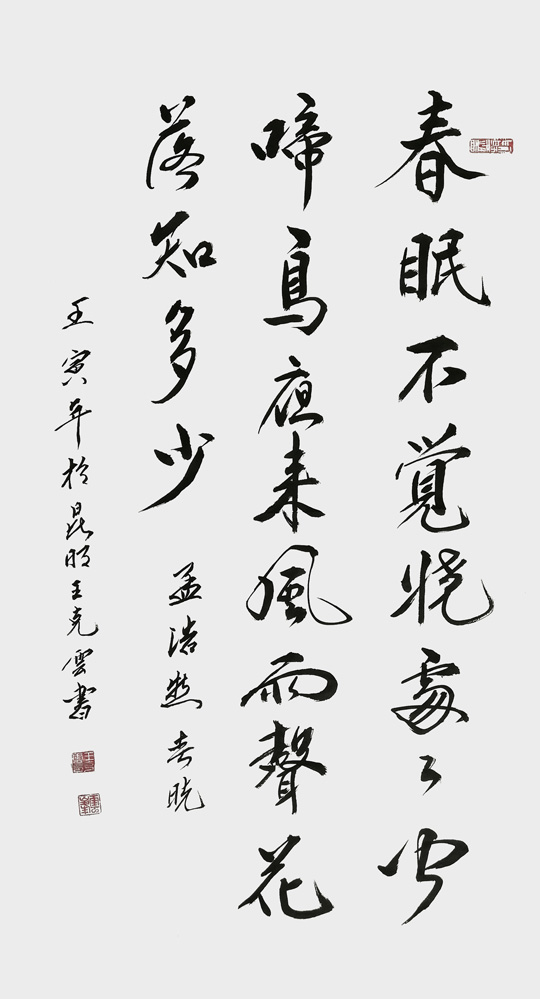 春眠不覺晓處々聞
啼鳥夜来風雨聲花
落知多少
孟浩然春晓
壬寅年於昆明王克雲書